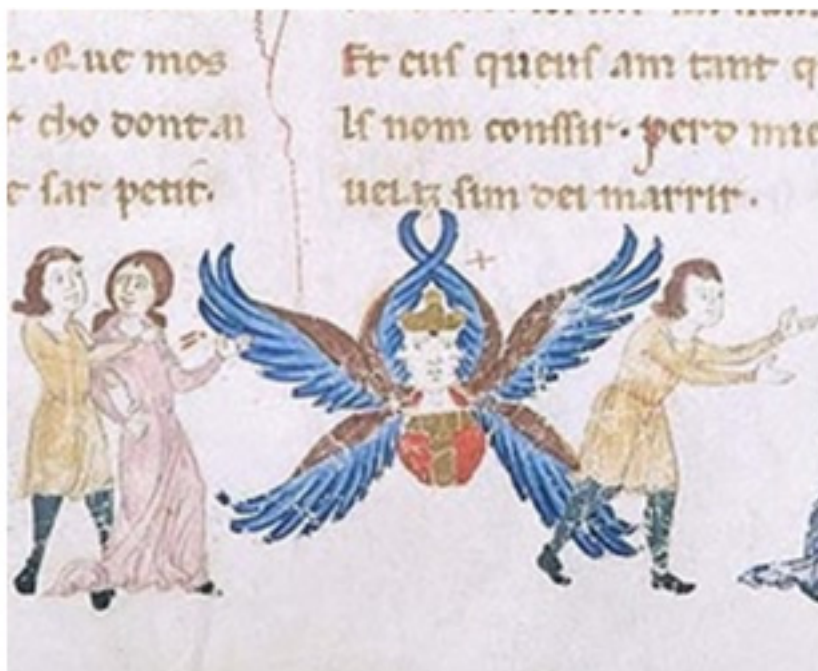 Que mos
cho dont ai
e far petit.
Et cus queus am tant q
ls nom conssir. pero mie
uelaz sim dei marrir.